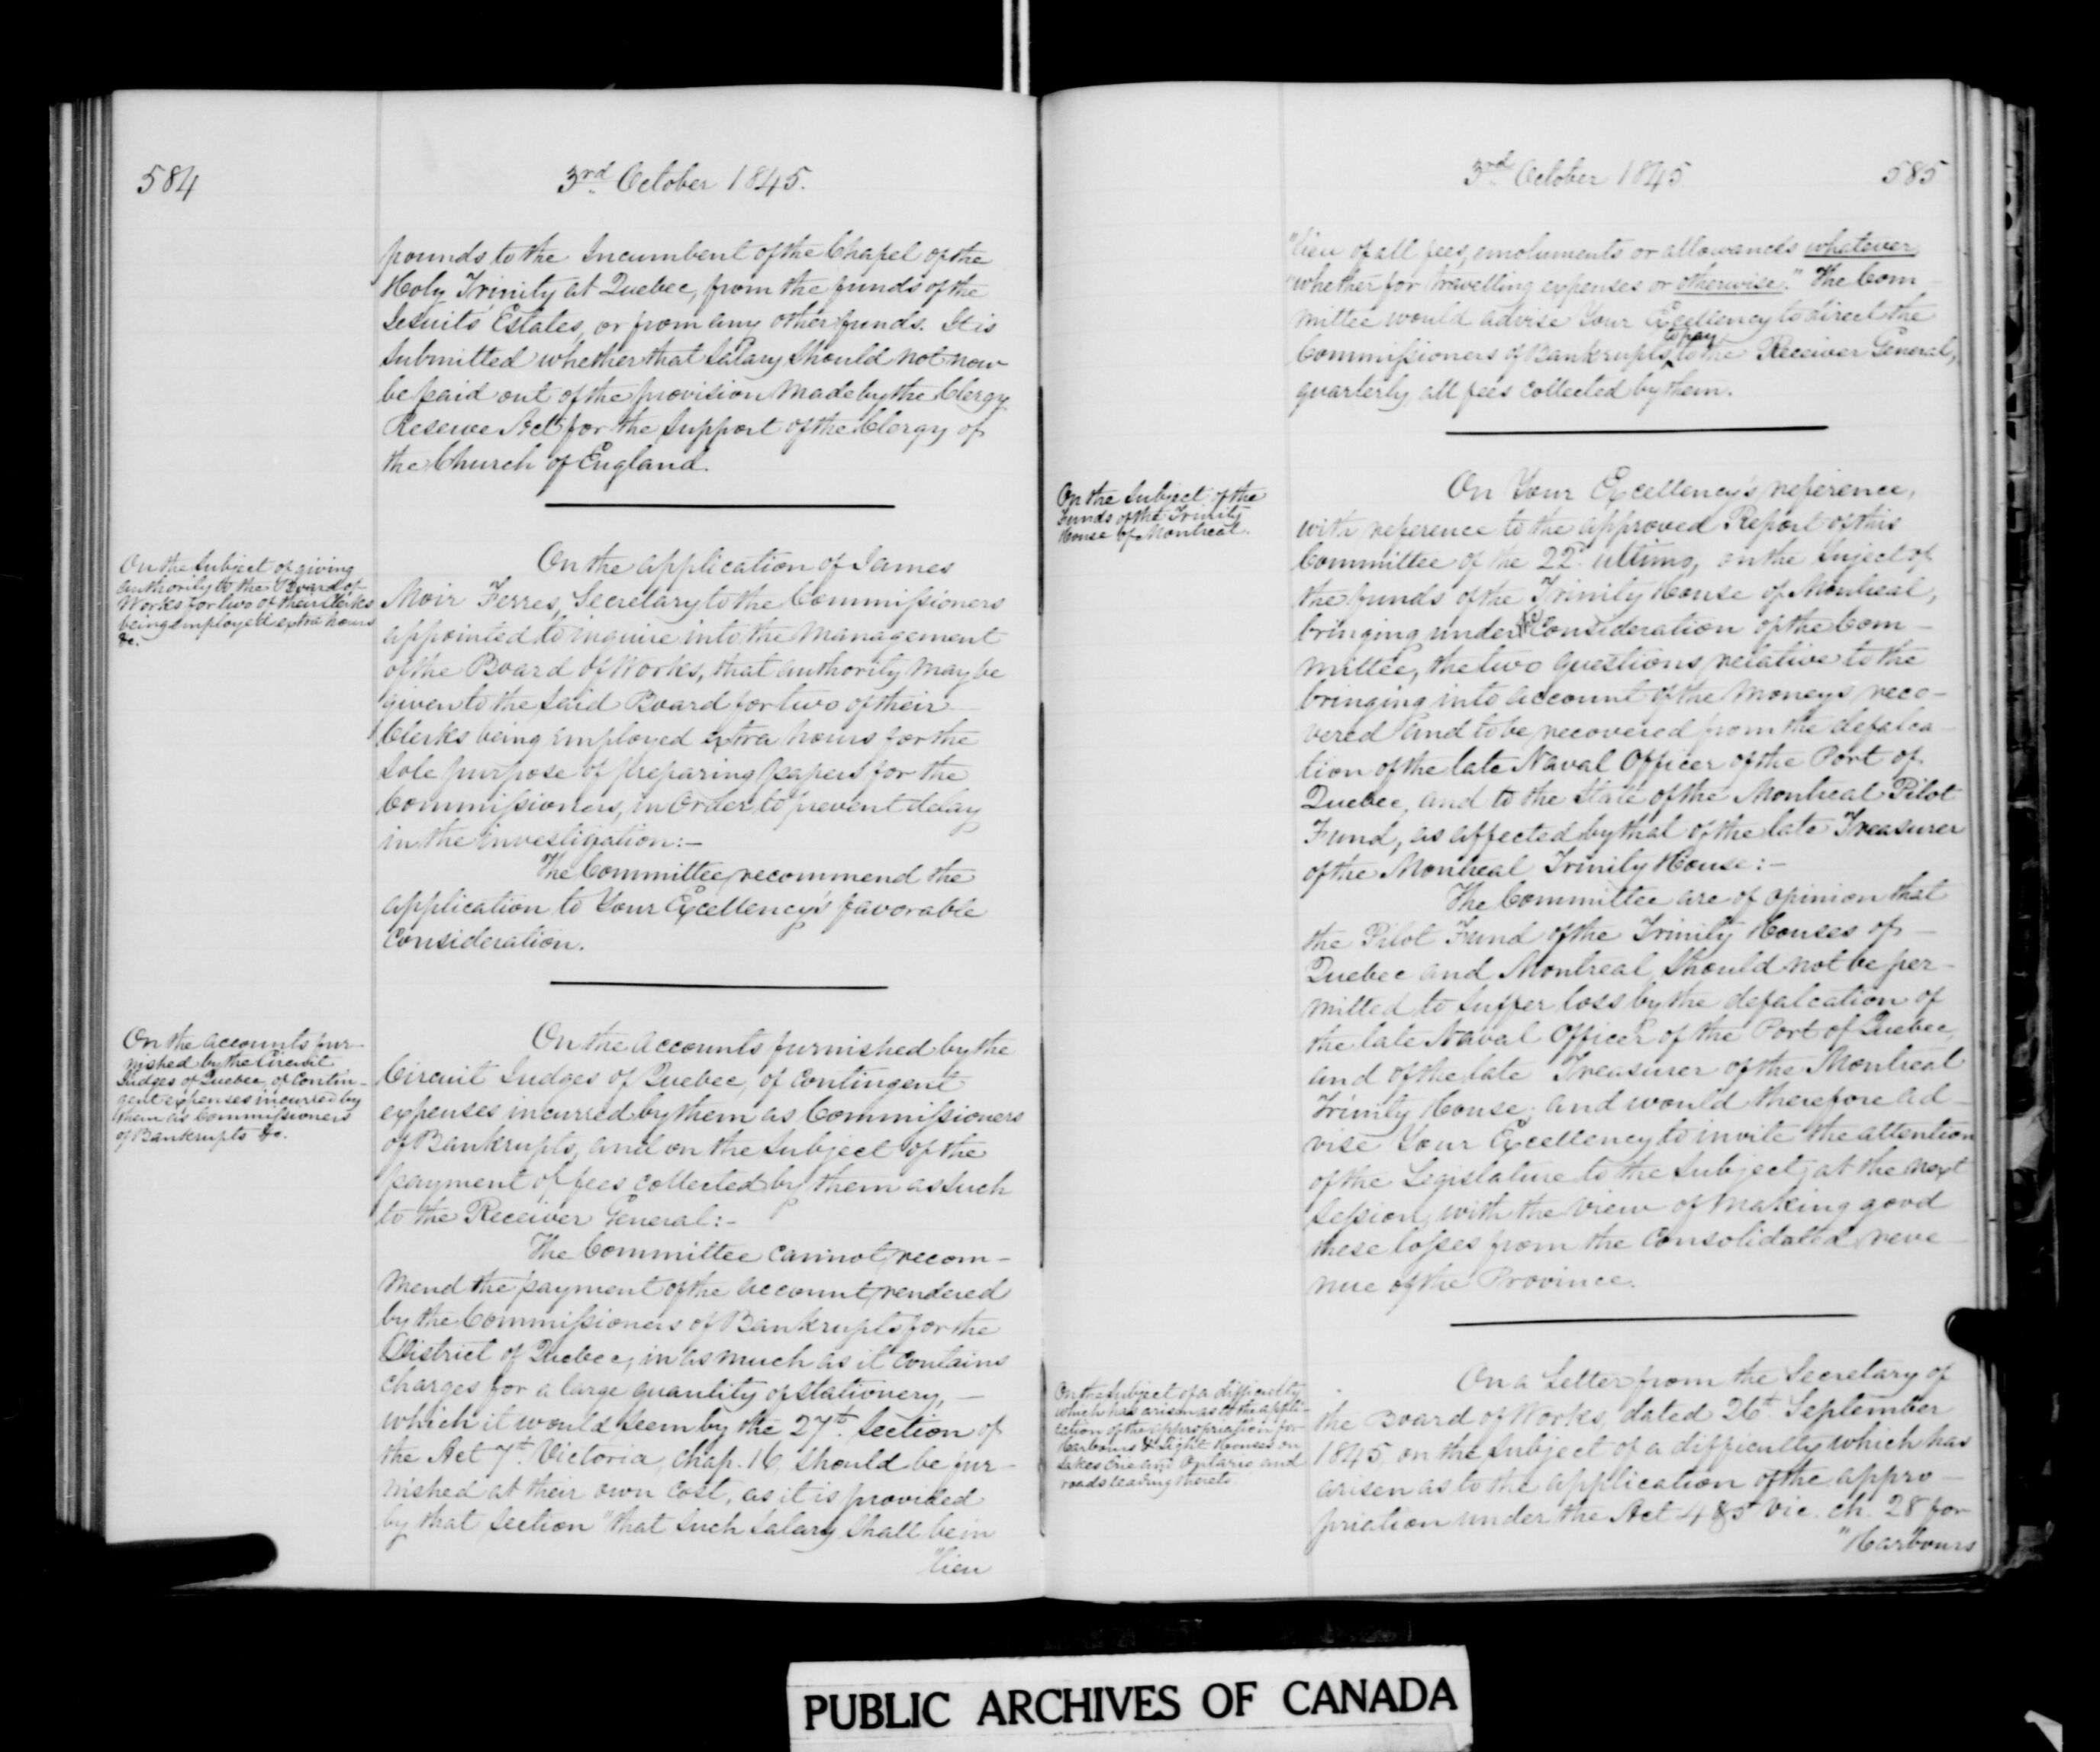 584
3rd October 1845.
pounds to the Incumbent of the Chapel of the
Holy Trinity at Quebec, from the funds of the
Jesuits' Estates, or from any other funds. It is
submitted whether that Salary should not now
be paid out of the provision made by the Clergy
Reserve Act for the support of the Clergy of
the Church of England.
On the Subject of giving
authority to the Board of
Works for two of their Clerks
being employed extra hours
&c.
On the application of James
Moir Ferres, Secretary to the Commissioners
appointed to inquire into the management
of the Board of Works, that authority may be
given to the said Board for two of their
Clerks being employed extra hours for the
sole purpose of preparing papers for the
Commissioners, in order to prevent delay
in the investigation:-
The Committee recommend the
application to Your Excellency's favorable
consideration.
On the accounts fur-
nished by the Circuit
Judges of Quebec, of Contin-
gent expenses incurred by
them as Commissioners
of Bankrupts &c.
On the accounts furnished by the
Circuit Judges of Quebec, of contingent
expenses incurred by them as Commissioners
of Bankrupts, and on the subject of the
payment of fees collected by them as such
to the Receiver General:-
The Committee cannot recom-
mend the payment of the account rendered
by the Commissioners of Bankrupts for the
District of Quebec, in as much as it contains
charges for a large quantity of stationery, -
which it would seem by the 27th. Section of
the Act 7th. Victoria, Chap. 16, should be fur-
nished at their own cost, as it is provided
by that section "that such salary shall be in
"lieu
3rd October 1845.
585
"lieu of all fees, emoluments or allowances whatever,
"whether for travelling expenses or otherwise." The Com-
mittee would advise Your Excellency to direct the
Commissioners of Bankrupts, to pay to the Receiver General,
quarterly, all fees collected by them.
On the Subject of the
Funds of the Trinity
House of Montreal.
On Your Excellency's reference,
with reference to the approved Report of this
Committee of the 22d. ultimo, on the Suject of
the funds of the Trinity House of Montreal,
bringing under the consideration of the Com-
mittee, the two questions relative to the
bringing into account of the moneys reco-
vered and to be recovered from the defalca-
tion of the late Naval Officer of the Port of
Quebec, and to the State of the Montreal Pilot
Fund, as affected by that of the late Treasurer
of the Montreal Trinity House:-
The Committee are of opinion that
the Pilot Fund of the Trinity Houses of -
Quebec and Montreal, should not be per-
mitted to suffer loss by the defalcation of
the late Naval Officer of the Port of Quebec,
and of the late Treasurer of the Montreal
Trinity House; and would therefore ad-
vise Your Excellency to invite the attention
of the Legislature to the subject, at the next
Session, with the view of making good
these losses from the Consolidated reve-
nue of the Province.
On the Subject of a difficulty
which has arisen as to the appli-
cation of the appropriation for
Harbours & Light Houses on
Lakes Erie and Ontario and
roads leading thereto
On a Letter from the Secretary of
the Board of Works, dated 26th September
1845, on the subject of a difficulty which has
arisen as to the application of the appro-
priation under the Act 4 & 5th Vic. ch. 28 for
"Harbours
PUBLIC ARCHIVES OF CANADA